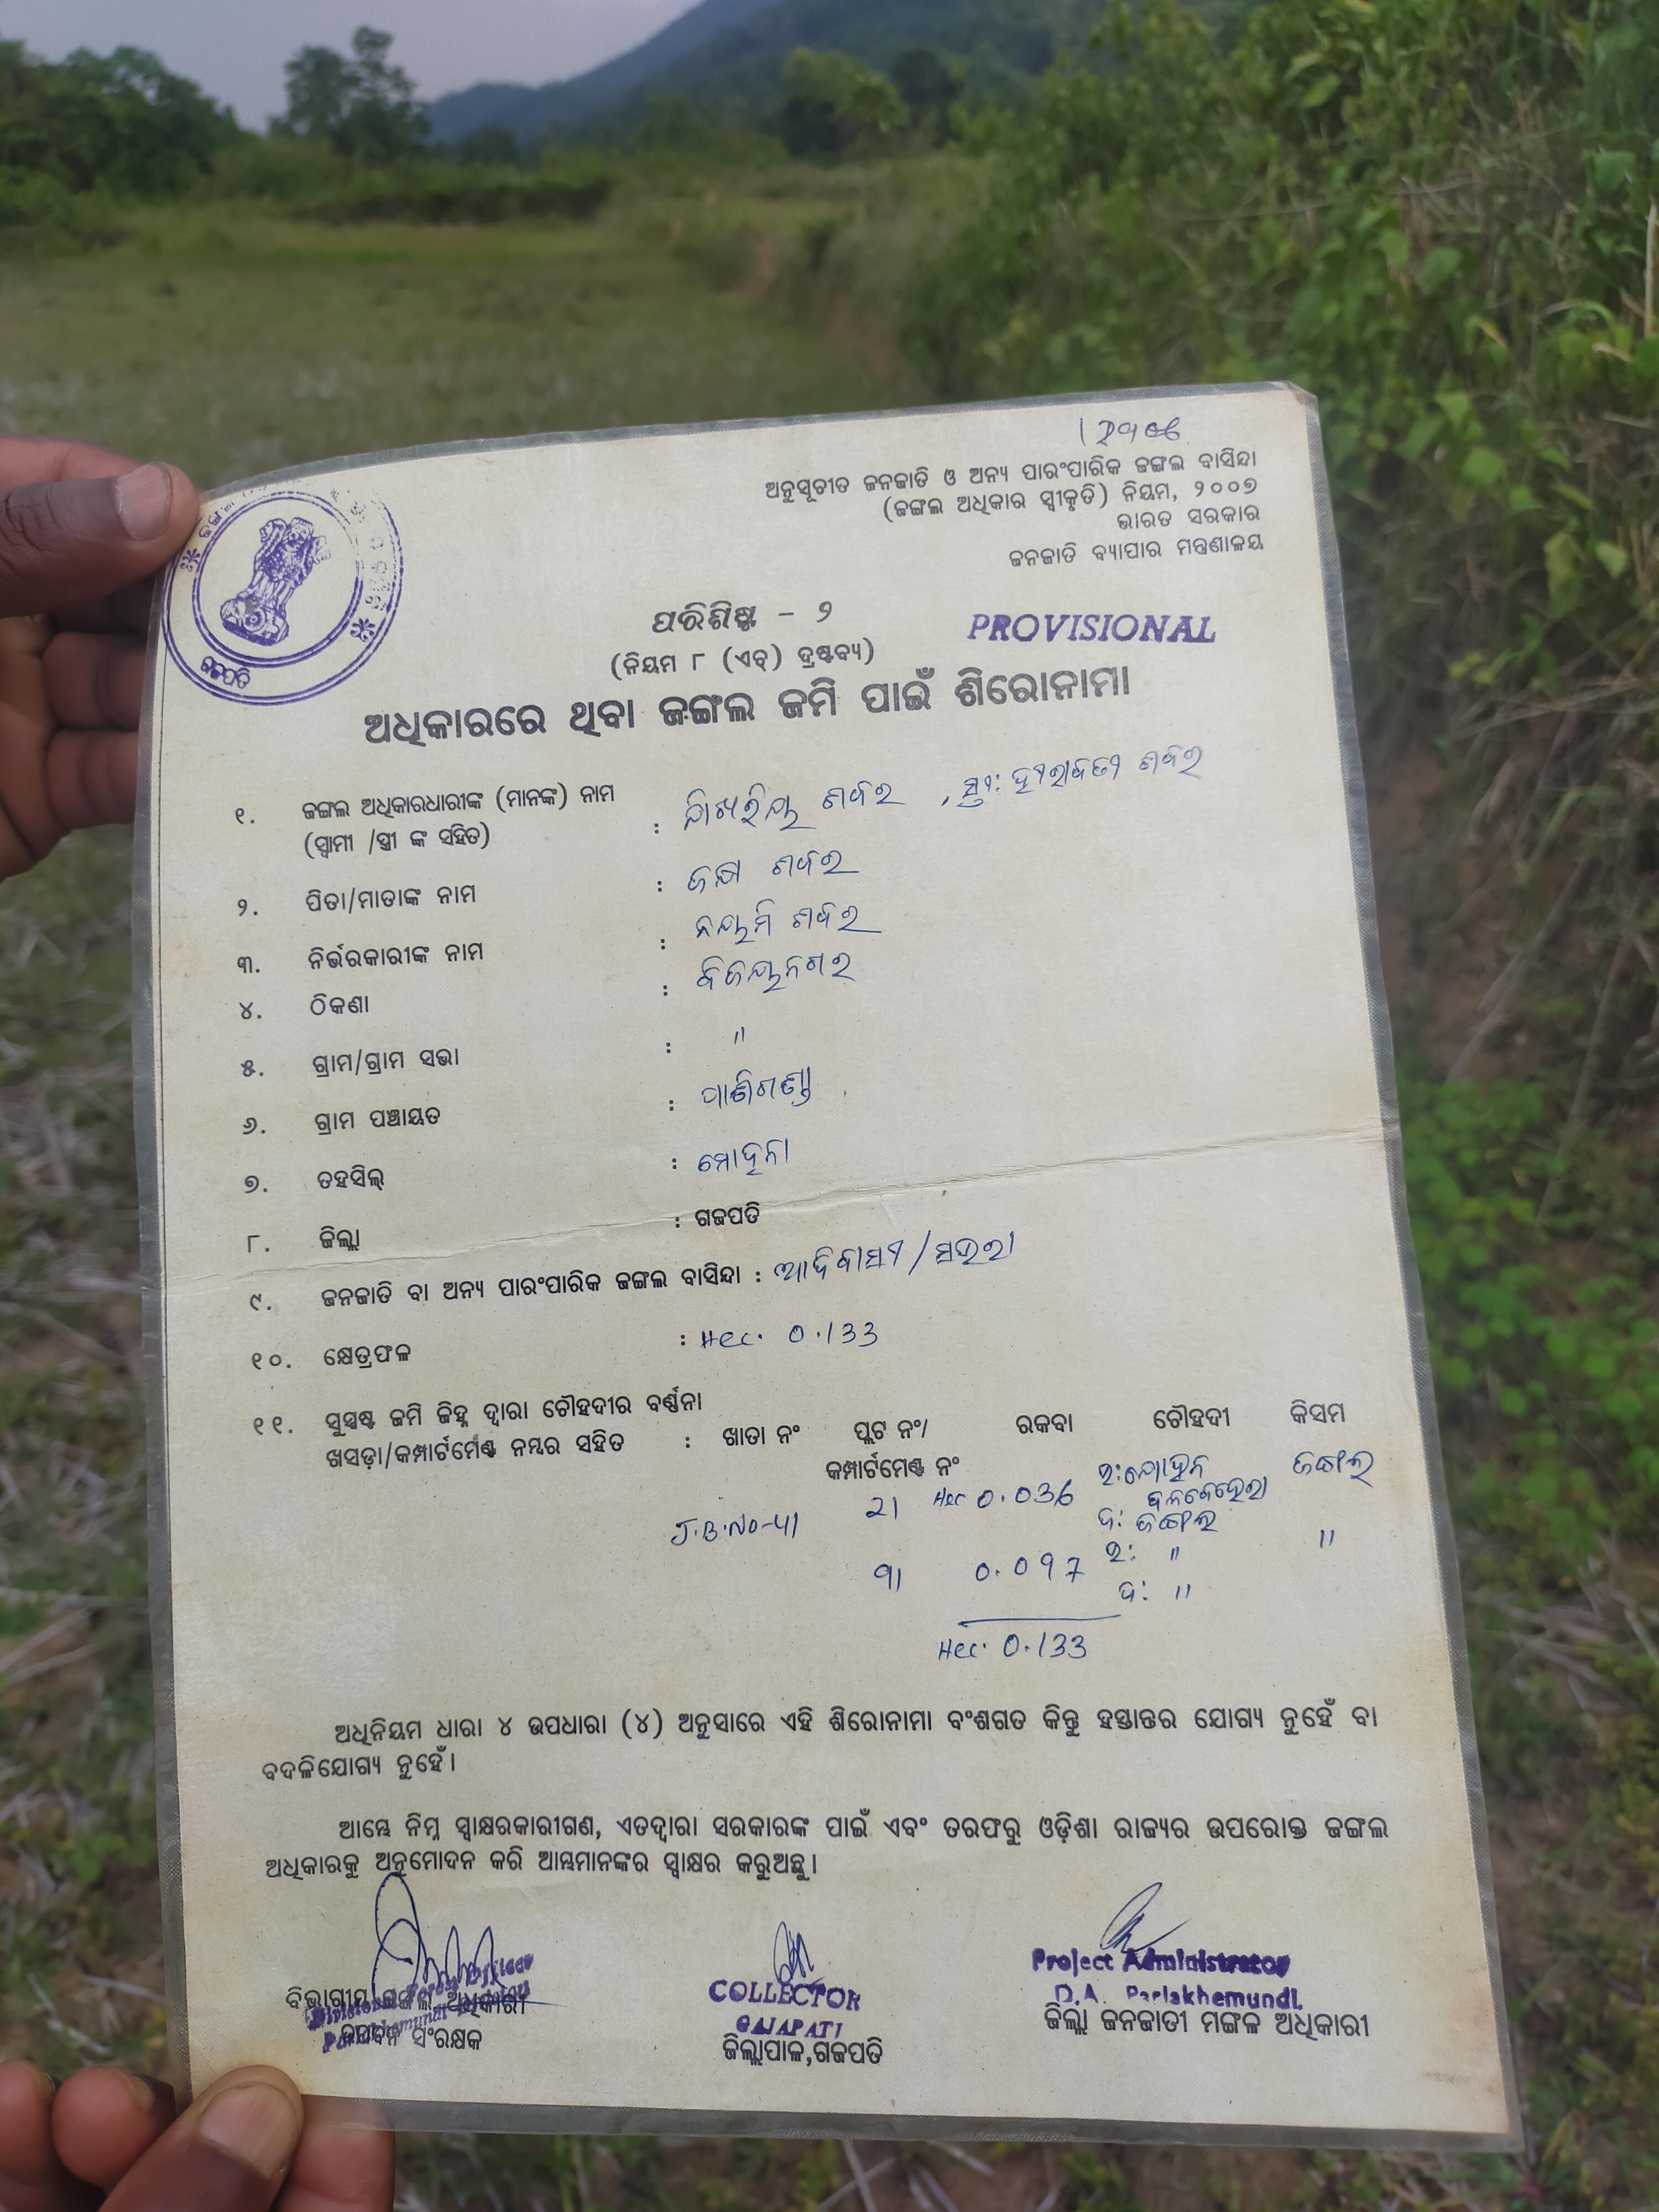 ଅନୁସୂଚୀତ ଜନଜାତି ଓ ଅନ୍ୟ ପାରଂପାରିକ ଜଙ୍ଗଲ ବାସିନ୍ଦା
(ଜଙ୍ଗଲ ଅଧିକାର ସ୍ୱୀକୃତି) ନିୟମ, ୨୦୦୭
ଭାରତ ସରକାର
ଜନଜାତି ବ୍ୟାପାର ମନ୍ତ୍ରଣାଳୟ
ଗଜପତି
ପରିଶିଷ୍ଟ - ୨
PROVISIONAL
(ନିୟମ ୮ (ଏଚ୍) ଦ୍ରଷ୍ଟବ୍ୟ)
ଅଧିକାରରେ ଥିବା ଜଙ୍ଗଲ ଜମି ପାଇଁ ଶିରୋନାମା
୧. ଜଙ୍ଗଲ ଅଧିକାରଧାରୀଙ୍କ (ମାନଙ୍କ) ନାମ
(ସ୍ୱାମୀ /ସ୍ତ୍ରୀ ଙ୍କ ସହିତ) : ଶବର , ସ୍ତ୍ରୀ: ଶବର
୨. ପିତା/ମାତାଙ୍କ ନାମ : ଶବର
୩. ନିର୍ଭରକାରୀଙ୍କ ନାମ : ଶବର
୪. ଠିକଣା : ବିଜୟନଗର
୫. ଗ୍ରାମ/ଗ୍ରାମ ସଭା : "
୬. ଗ୍ରାମ ପଞ୍ଚାୟତ : ପାଣିଗଣ୍ଡା
୭. ତହସିଲ୍ : ମୋହନା
୮. ଜିଲ୍ଲା : ଗଜପତି
୯. ଜନଜାତି ବା ଅନ୍ୟ ପାରଂପାରିକ ଜଙ୍ଗଲ ବାସିନ୍ଦା : ଆଦିବାସୀ / ସଉରା
୧୦. କ୍ଷେତ୍ରଫଳ : Hec. 0.133
୧୧. ସୁସ୍ପଷ୍ଟ ଜମି ଚିହ୍ନ ଦ୍ୱାରା ଚୌହଦୀର ବର୍ଣ୍ଣନା
ଖସଡ଼ା/କମ୍ପାର୍ଟମେଣ୍ଟ ନମ୍ବର ସହିତ : ଖାତା ନଂ ପ୍ଲଟ ନଂ/ ରକବା ଚୌହଦୀ କିସମ
କମ୍ପାର୍ଟମେଣ୍ଟ ନଂ
J.B.No-41 21 Hec 0.036 ଉ: ଜଙ୍ଗଲ
ଦ: ଜଙ୍ଗଲ
0.097 ଉ: " "
ଦ: "
Hec. 0.133
ଅଧିନିୟମ ଧାରା ୪ ଉପଧାରା (୪) ଅନୁସାରେ ଏହି ଶିରୋନାମା ବଂଶଗତ କିନ୍ତୁ ହସ୍ତାନ୍ତର ଯୋଗ୍ୟ ନୁହେଁ ବା
ବଦଳିଯୋଗ୍ୟ ନୁହେଁ।
ଆମ୍ଭେ ନିମ୍ନ ସ୍ୱାକ୍ଷରକାରୀଗଣ, ଏତଦ୍ୱାରା ସରକାରଙ୍କ ପାଇଁ ଏବଂ ତରଫରୁ ଓଡ଼ିଶା ରାଜ୍ୟର ଉପରୋକ୍ତ ଜଙ୍ଗଲ
ଅଧିକାରକୁ ଅନୁମୋଦନ କରି ଆମ୍ଭମାନଙ୍କର ସ୍ୱାକ୍ଷର କରୁଅଛୁ।
Project Administrator
COLLECTOR D.A. Parlakhemundi
ବିଭାଗୀୟ ଜଙ୍ଗଲ ଅଧିକାରୀ GAJAPATI ଜିଲ୍ଲା ଜନଜାତୀ ମଙ୍ଗଳ ଅଧିକାରୀ
ସଂରକ୍ଷକ ଜିଲ୍ଲାପାଳ,ଗଜପତି